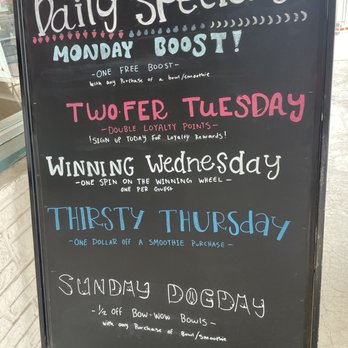 Daily Specials
MONDAY BOOST!
-ONE FREE BOOST-
with any Purchase of a bowl/smoothie
TWO-FER TUESDAY
-DOUBLE LOYALTY POINTS-
!SIGN UP TODAY FOR LOYALTY REWARDS!
WINNING WEDNESDAY
-ONE SPIN ON THE WINNING WHEEL-
ONE PER GUEST
THIRSTY THURSDAY
-ONE DOLLAR OFF A SMOOTHIE PURCHASE-
SUNDAY DOGDAY
-½ OFF BOW-WOW BOWLS-
with any Purchase of Bowl/Smoothie